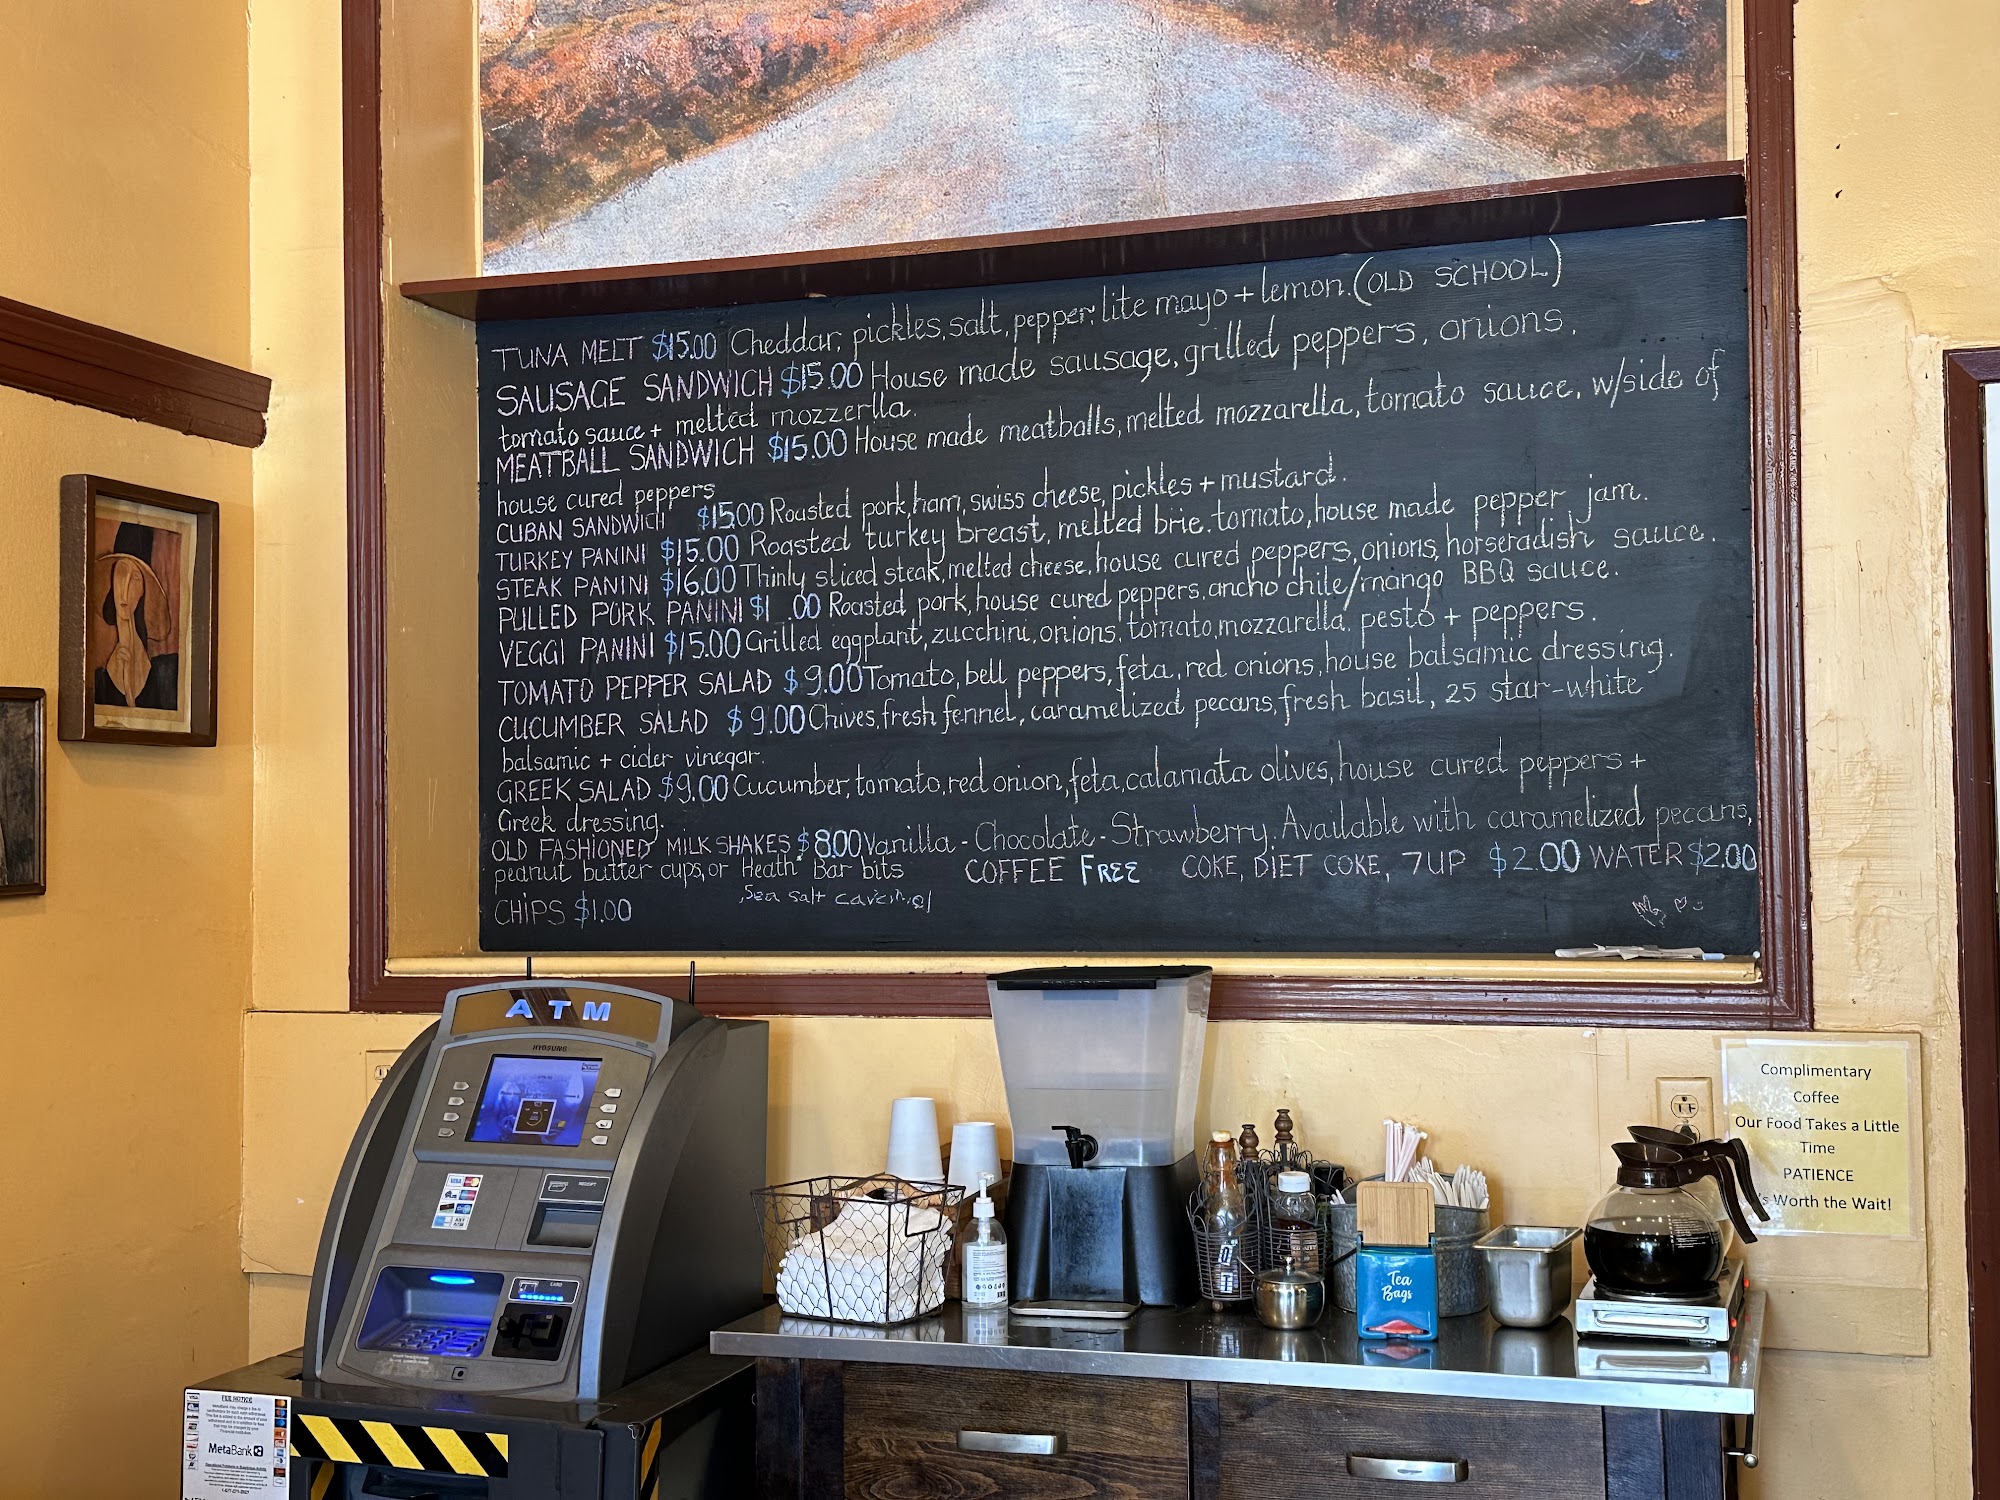 TUNA MELT $15.00 Cheddar, pickles, salt, pepper, lite mayo + lemon. (OLD SCHOOL)
SAUSAGE SANDWICH $15.00 House made sausage, grilled peppers, onions,
tomato sauce + melted mozzerlla.
MEATBALL SANDWICH $15.00 House made meatballs, melted mozzarella, tomato sauce, w/side of
house cured peppers
CUBAN SANDWICH $15.00 Roasted pork, ham, swiss cheese, pickles + mustard.
TURKEY PANINI $15.00 Roasted turkey breast, melted brie, tomato, house made pepper jam.
STEAK PANINI $16.00 Thinly sliced steak, melted cheese, house cured peppers, onions, horseradish sauce.
PULLED PORK PANINI $1 .00 Roasted pork, house cured peppers, ancho chile/mango BBQ sauce.
VEGGI PANINI $15.00 Grilled eggplant, zucchini, onions, tomato, mozzarella, pesto + peppers.
TOMATO PEPPER SALAD $9.00 Tomato, bell peppers, feta, red onions, house balsamic dressing.
CUCUMBER SALAD $9.00 Chives, fresh fennel, caramelized pecans, fresh basil, 25 star-white
balsamic + cider vinegar.
GREEK SALAD $9.00 Cucumber, tomato, red onion, feta, calamata olives, house cured peppers +
Greek dressing.
OLD FASHIONED MILK SHAKES $8.00 Vanilla - Chocolate - Strawberry. Available with caramelized pecans,
peanut butter cups, or Heath Bar bits COFFEE FREE COKE, DIET COKE, 7UP $2.00 WATER $2.00
Sea salt
CHIPS $1.00
ATM
HYOSUNG
RECEIPT
CARD
VISA
FEE NOTICE
MetaBank
Tea
Bags
Complimentary
Coffee
Our Food Takes a Little
Time
PATIENCE
Worth the Wait!